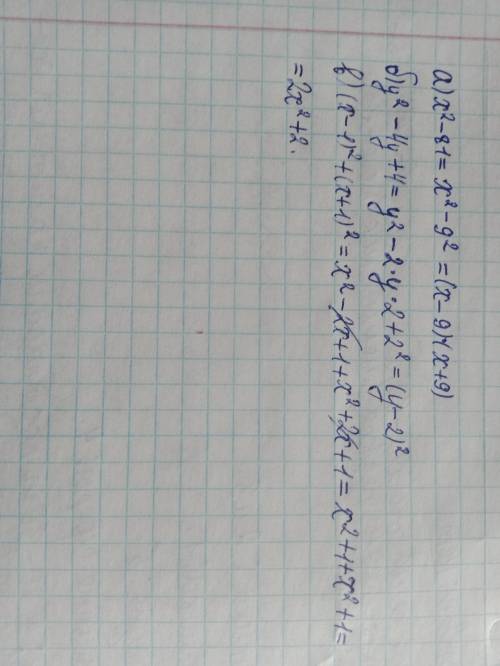 а) x²-81 = x²-9² = (x-9)*(x+9)
б) y²-4y+4 = y²-2*y*2+2² = (y-2)²
в) (x-1)²+(x+1)² = x²-2x+1+x²+2x+1 = x²+1+x²+1 =
= 2x²+2.